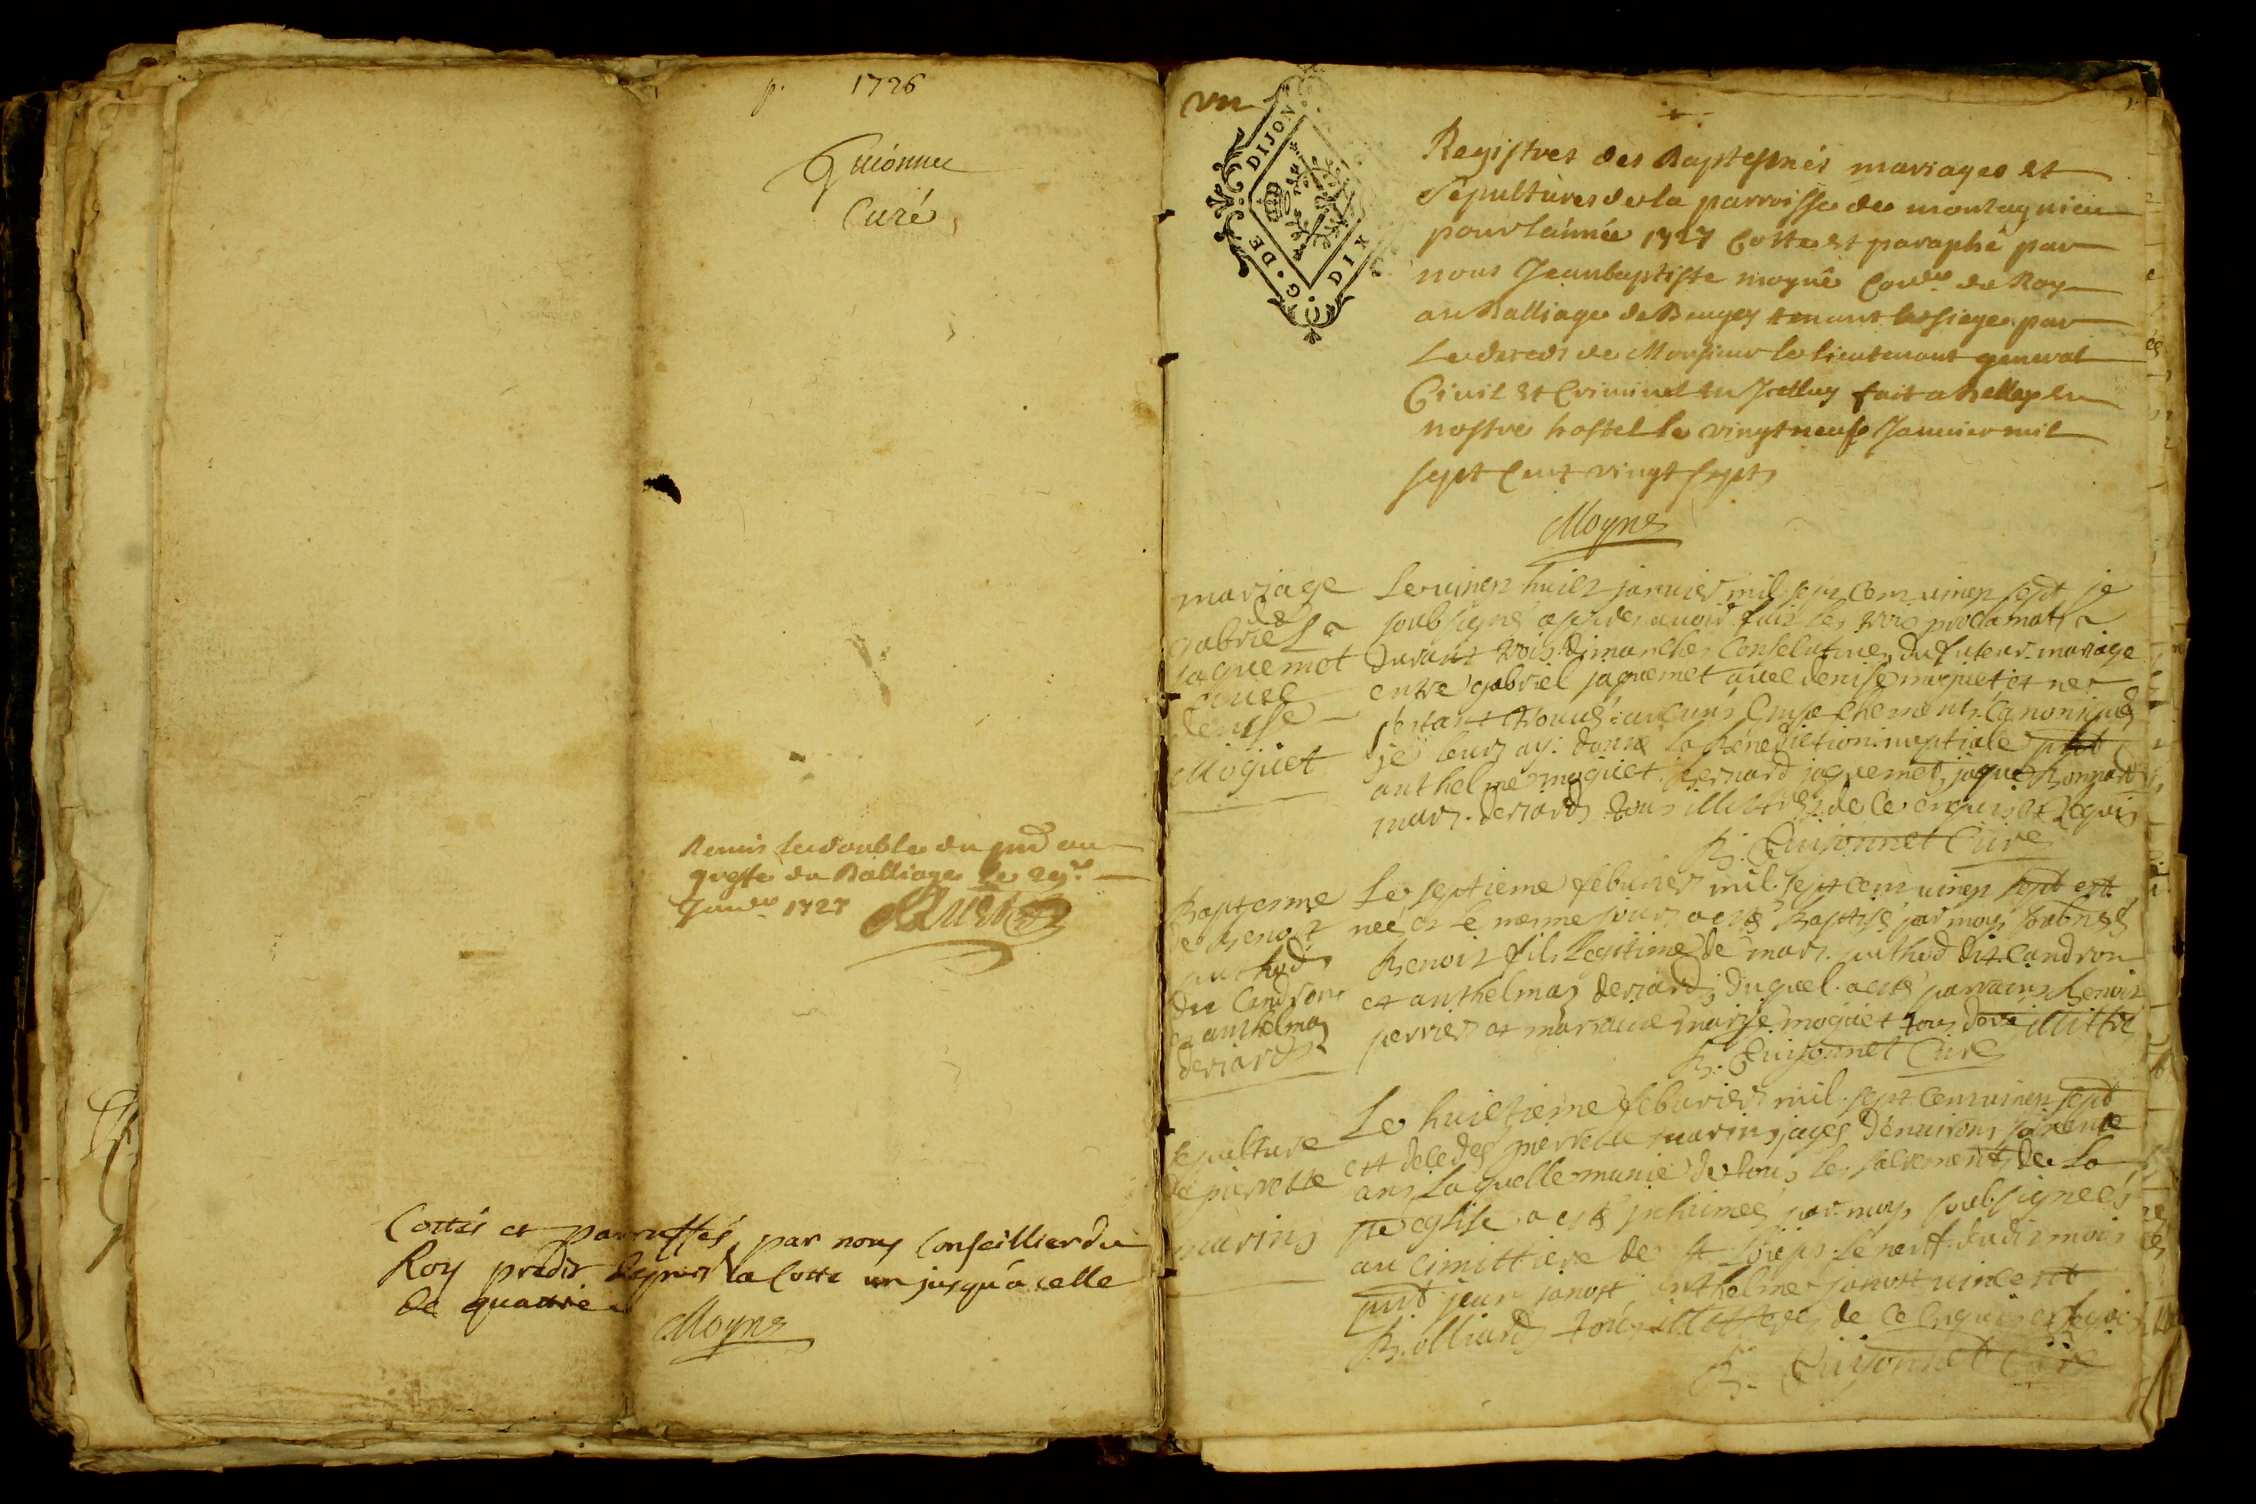 p. 1726
Curé
Remis le double du pnt au
greffe du Balliage le 29e
Janv. 1727
Cottés et parraffés par nous Conseillier du
Roy predit depuis la Cotte un jusqu'a celle
de quattre
Moyne
un
G. DE DIJON
DIX
Registres des Baptesmes mariages et
Sepultures de la parroisse de montagnieu
pour l'année 1727 Cotté et paraphé par
nous Jeanbaptiste moyne Coner du Roy
au Balliage de Beugey tenant le siege par
Le deceds de Monsieur le lieutenant general
Civil et Criminel en Icelluy fait a Belley en
nostre hostel le vingt neuf Janvier mil
sept Cent vingt sept
Moyne
mariage
de
gabriel
jaquemot
avec
denise
Moguet
Le vingt huict janvier mil sept cent vingt sept je
soubsigné apres avoir fait les trois proclamats
durant trois dimanches Consecutives du futeur mariage
entre gabriel jaquemet avec denise moguet et ne
s'estant trouvé aucuns Empechements Canoniques
je leurs ay donné la Benediction nuptiale pnt
anthelme moguet Bernard jaquemet jaque Bonnard
mar. deriard tous illittrés de ce enquis et requis
B. Cuijonnet Curé
Baptesme
de Benoit
puthod
du Candron
et anthelma
deriard
Le septieme febvrier mil sept cent vingt sept est
neé et le mesme jour a esté Baptisé par moy soubsigé
Benoit fils legitime de mar. puthod dit Candron
et anthelma deriard duquel a esté parrain Benoit
perrier et marraine marie moguet tous deux illittré
B. Cuijonnet Curé
sepulture
de pierrette
marin
Le huictieme febvrier mil sept cent vingt sept
est decedeé pierrette marin agés d'environ soixente
ans laquelle munie de tous les sacrements de la
ste eglise a esté inhumeé par moy soubsigneés
au cimittiere de st le neuf dudit mois
pnt jean janost anthelme janost vincent
Billiard tous illittres de ce enquis et requis
B. Cuijonnet Curé